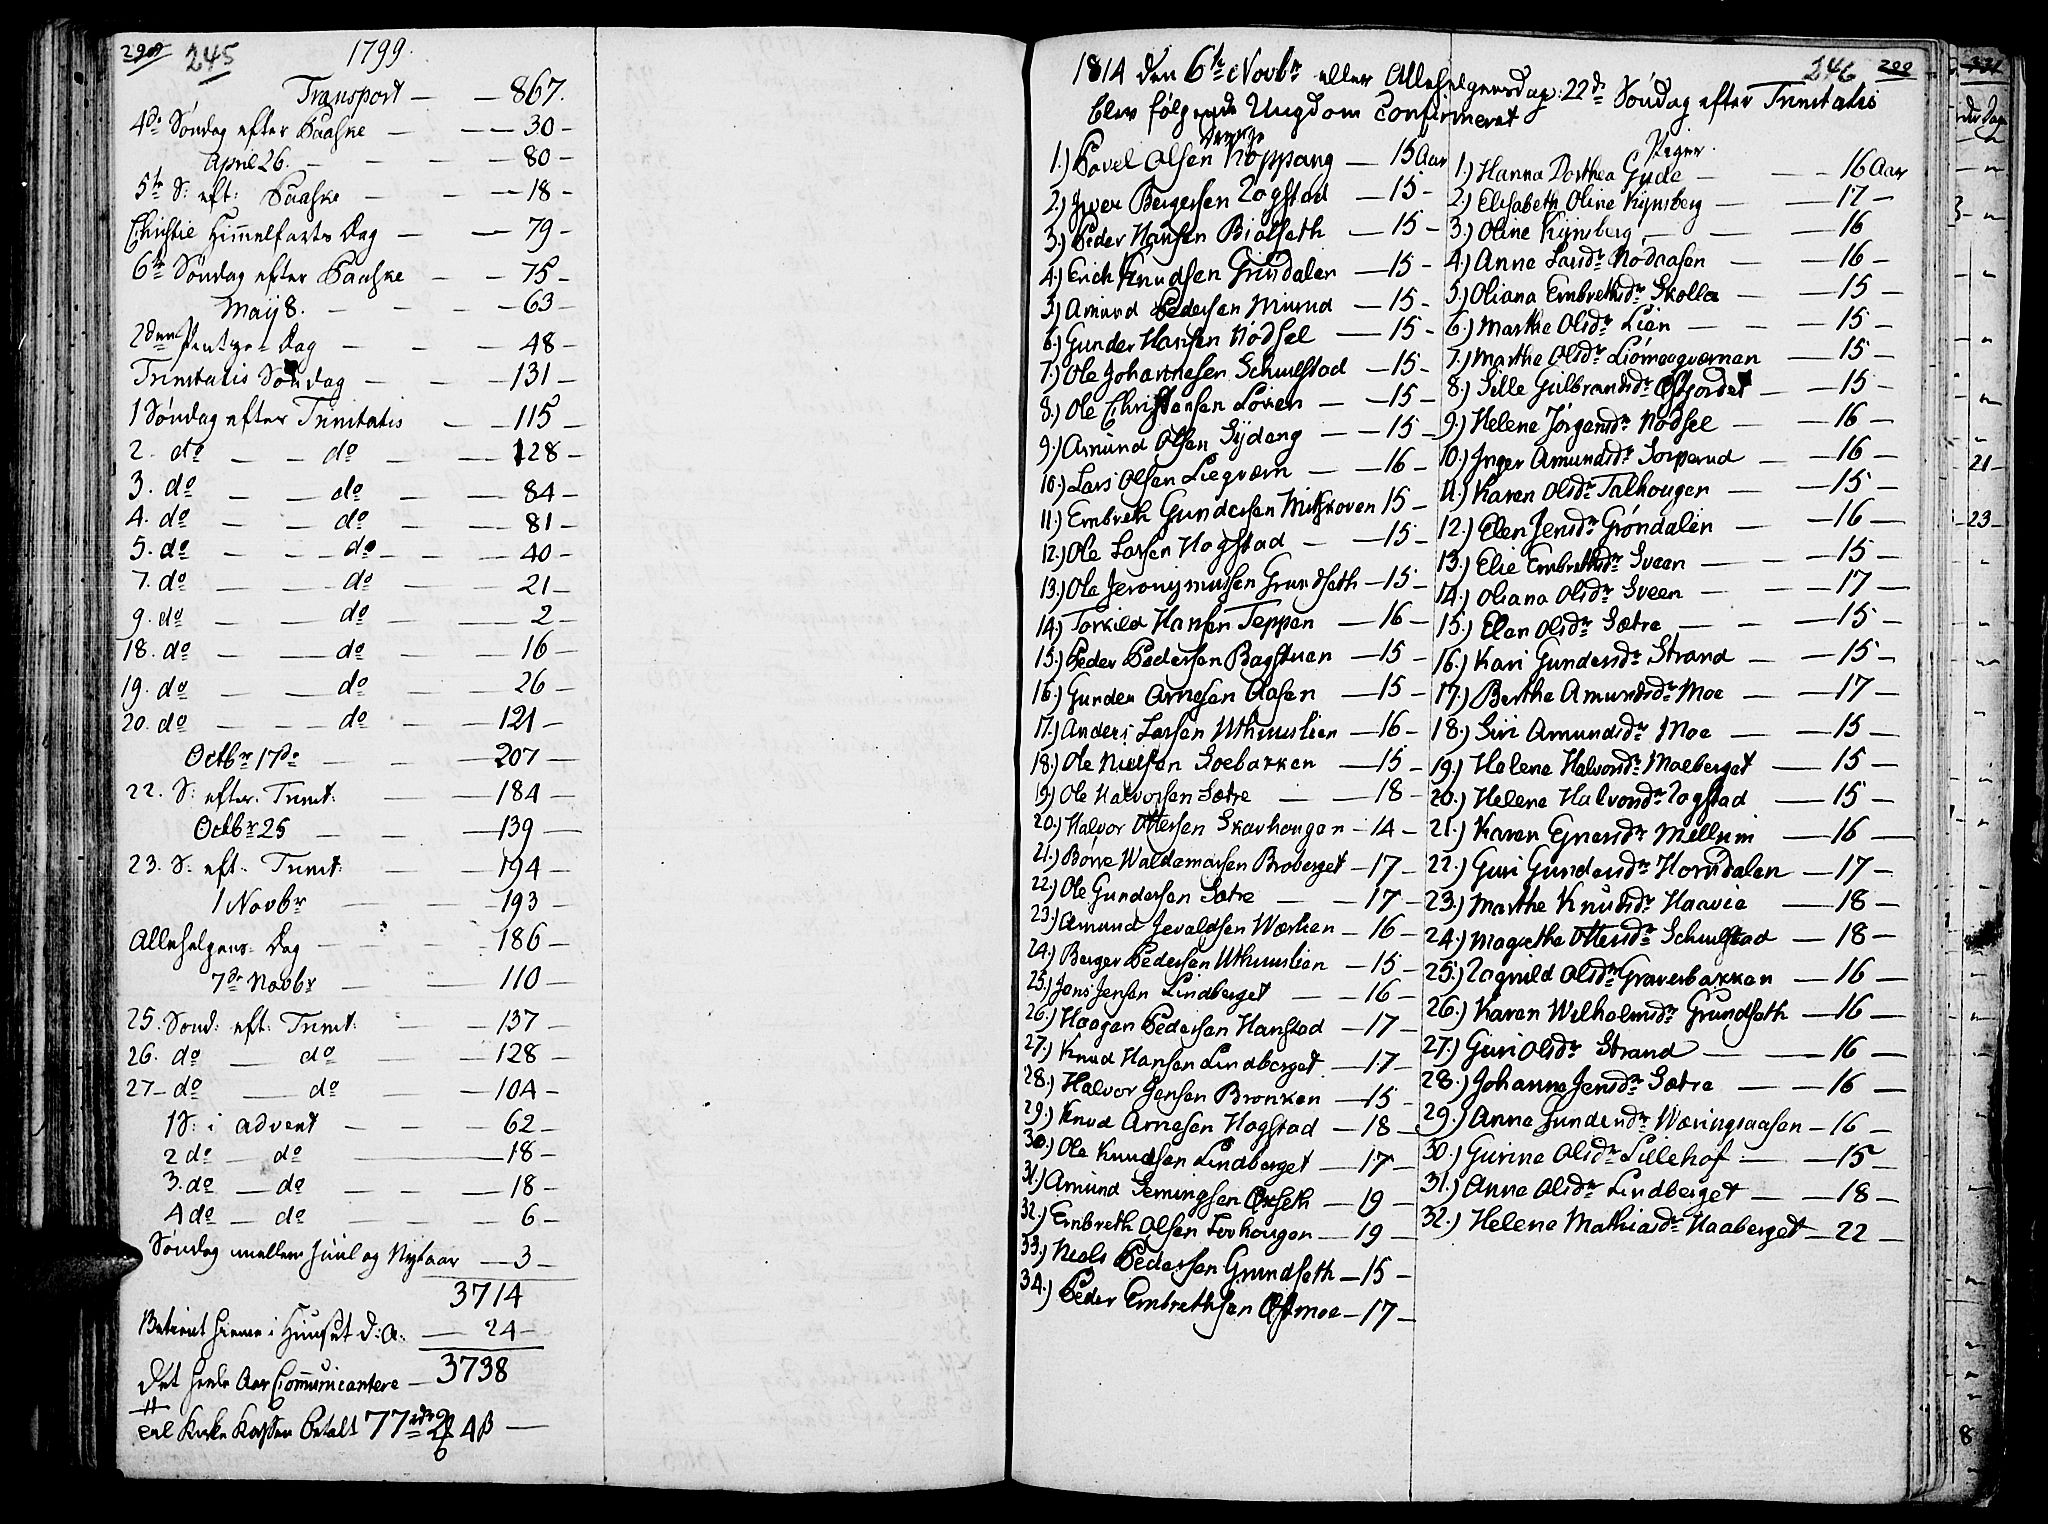 245
1799.
Transport — — 867.
4de Søndag efter Paaske — — — 30 —
April 26. — — — 80 —
5te S: eft: Paaske — — — 18 —
Christie Himmelfarts Dag — — 79 —
6te Søndag efter Paaske — — 75 —
Maij 8. — — — 63 —
2den Pintze-Dag — — — 48 —
Trinitatis Søndag — — 131 —
1 Søndag efter Trinitatis — — 115 —
2. do — — do — — 128 —
3. do — — do — — 84 —
4. do — — do — — 81 —
5. do — — do — — 40 —
7. do — — do — — 21 —
9. do — — do — — 2 —
18. do — — do — — 16 —
19. do — — do — — 26 —
20. do — — do — — 121 —
Octbr 17de — — — 207 —
22. S: efter. Trinit: — — 184 —
Octbr 25 — — — 139 —
23. S: eft. Trinit: — — 194 —
1 Novbr — — 193 —
Allehelgens-Dag — — — 186 —
7de Novbr — — 110 —
25. Sønd: eft: Trinit: — — 137 —
26. do — do — — 128 —
27 — do — do — — 104 —
1 S: i advent — — — 62 —
2 do — do — 18 —
3. do — do — — — 18 —
4 do — do — — — 6 —
Søndag mellem Juul og Nytaar — 3 —
3714
Betient hieme i Huuset d: a: — 24 —
3738
Det heele Aar Communicantere —
til Kirke Kassen betalt 77 rdr 4 β —
246
1814 den 6te Novbr eller Allehelgensdag: 22de Søndag efter Trinitatis
blev følgende Ungdom Confirmeret
Drenge
1.) Povel Olsen Koppang — 15 Aar
2.) Iwer Bergersen Zogstad — 15 —
3.) Peder Hansen Biølseth — 15 —
4.) Erich Knudsen Grindalen — 15 —
5.) Amund Pedersen Mürud — 15 —
6.) Gunder Hansen Nødsel — 15 —
7.) Ole Johannesen Schulstad — 15 —
8.) Ole Christensen Løken — 15 —
9.) Amund Olsen Sÿdeng — 15 —
10.) Lars Olsen Liegværn — 16 —
11.) Embreth Gundersen Mitskoven 15 —
12.) Ole Larsen Hogstad — 15 —
13.) Ole Jeronymussen Grundseth — 15 —
14.) Torkild Hansen Teppen — 16 —
15.) Peder Pedersen Bagstuen — 15 —
16.) Gunder Arnesen Aasen — 15 —
17.) Anders Larsen Uthuuslien — 16 —
18.) Ole Nielsen Soebakken — 15 —
19.) Ole Halvorsen Sætre — — 18 —
20.) Halvor Ottersen Skavhougen — 14 —
21.) Børre Waldemarsen Broberget — 17 —
22.) Ole Gundersen Sætre — 17 —
23.) Amund Jevaldsen Wærlien — 16 —
24.) Berger Pedersen Uthuuslien — 15 —
25.) Jens Jensen Lindberget — 16 —
26.) Haagen Pedersen Hanstad — 17 —
27.) Knud Hansen Lindberget — 17 —
28.) Halvor Jensen Bronken — 15 —
29.) Knud Arnesen Hogstad — 18 —
30.) Ole Knudsen Lindberget — 17 —
31.) Amund Semingsen Oxseth — 19 —
32.) Embreth Olsen Lovhougen — 19 —
33.) Niels Pedersen Grundseth — 15 —
34.) Peder Embrethsen Østmoe — 17 —
Piger.
1.) Hanna Dorthea Gude — — 16 Aar
2.) Elisabeth Oline Kynsberg — 17 —
3.) Oline Kynsberg — — 16
4.) Anne Larsdr Nødaasen — 16 —
5.) Oliana Embrethsdr Skolla — 15 —
6.) Marthe Olsdr Lien — — 15 —
7.) Marthe Olsdr Liømoegværnen — 15 —
8.) Sille Gulbrandsdr Østjordet — 15 —
9.) Helene Jørgensdr Nødsel — 16 —
10.) Inger Amundsdr Sorperud — 16 —
11.) Karen Olsdr Talhougen — 15 —
12.) Elen Jensdr Grøndalen — 16 —
13.) Elie Embrethsdr Sveen — — 15 —
14.) Oliana Olsdr Sveen — — 17 —
15.) Elen Olsdr Sætre — — 15 —
16.) Kari Gundersdr Strand — 15 —
17.) Berthe Amundsdr Moe — 17 —
18.) Siri Amundsdr Moe — 15 —
19.) Helene Halvorsdr Moeberget — 15 —
20.) Helene Halvorsdr Zogstad — 15 —
21.) Karen Ejnersdr Mellum — 16 —
22.) Guri Gundersdr Horndalen — 17 —
23.) Marthe Knudsdr Haavie — 18 —
24.) Magrethe Ottersdr Schulstad — 18 —
25.) Zognild Olsdr Graverbakken — 16 —
26.) Karen Wilhelmsdr Grundseth — 16 —
27.) Guri Olsdr Strand — — 16 —
28.) Johanne Jensdr Sætre — — 16 —
29.) Anne Gundersdr Wæringsaasen — 16 —
30.) Gurine Olsdr Lillehof — — 15 —
31.) Anne Olsdr Lindberget — — 18 —
32.) Helene Mathiasdr Haaberget — 22 —
21 —
23 —
8